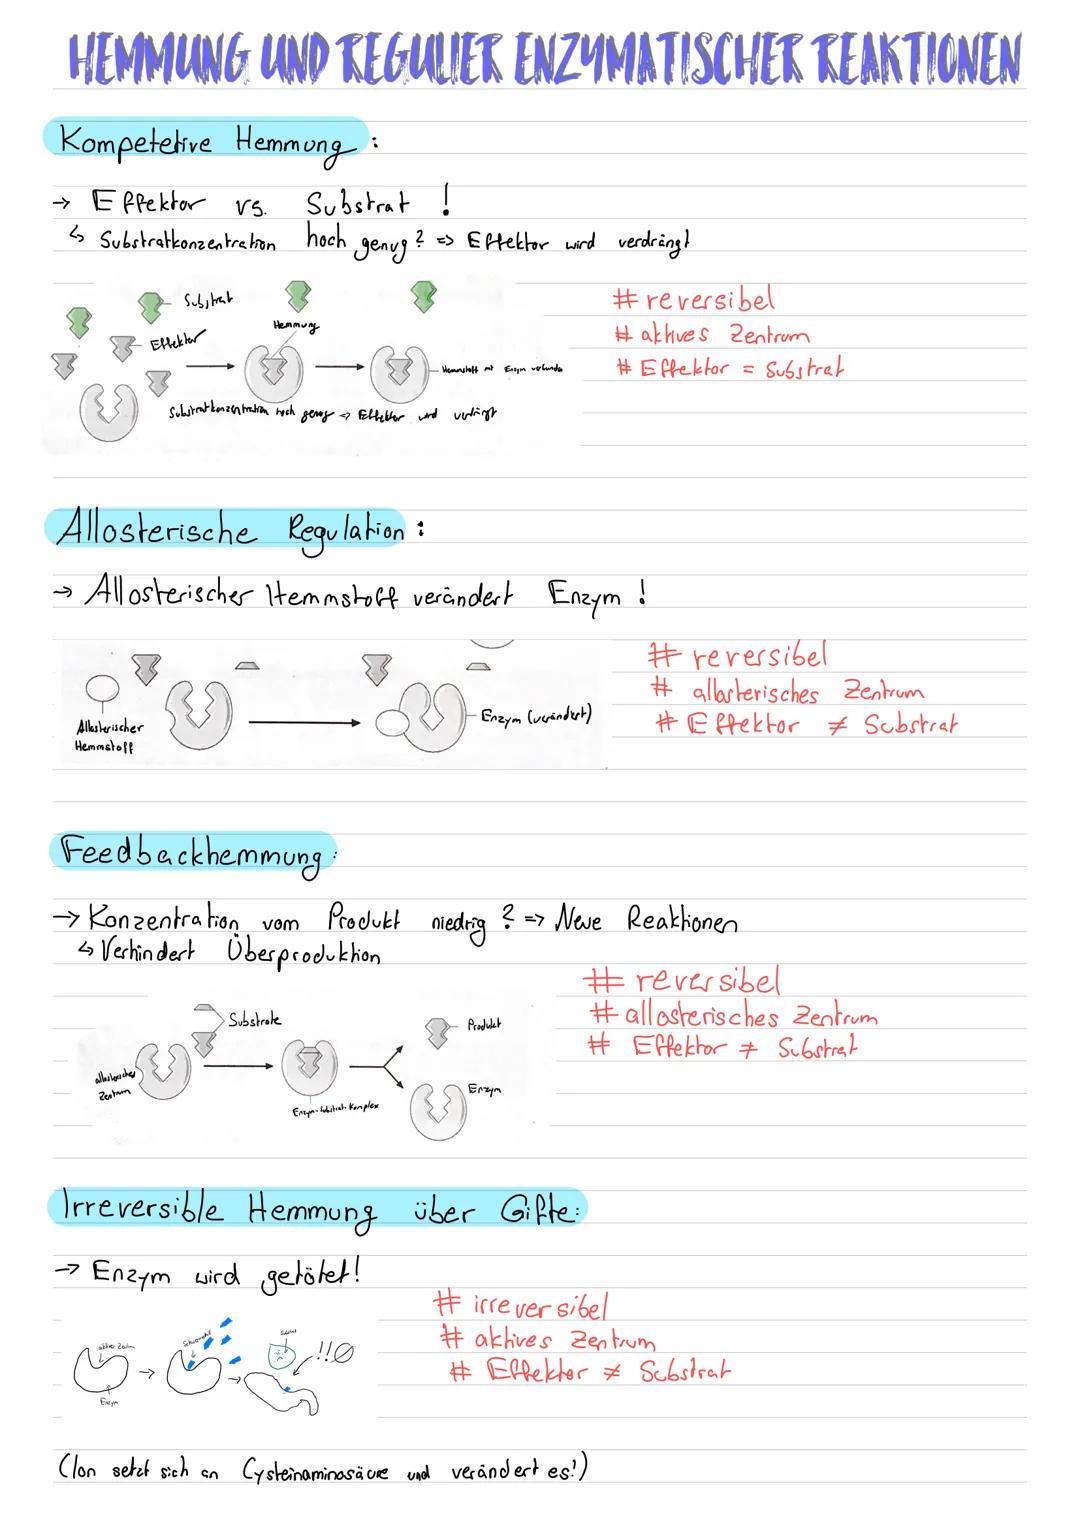 HEMMUNG UND REGULIER ENZYMATISCHER REAKTIONEN
Kompetetive Hemmung:
→ Effektor vs. Substrat !
↳ Substratkonzentration hoch genug? => Effektor wird verdrängt
Substrat
Effektor
Hemmung
Hemmstoff mit Enzym verbunden
Substratkonzentration hoch genug => Effektor wird verdrängt
# reversibel
# aktives Zentrum
# Effektor = Substrat
Allosterische Regulation:
→ Allosterischer Hemmstoff verändert Enzym !
Allosterischer
Hemmstoff
Enzym (verändert)
# reversibel
# allosterisches Zentrum
# Effektor ≠ Substrat
Feedbackhemmung:
→ Konzentration vom Produkt niedrig? => Neue Reaktionen
↳ Verhindert Überproduktion
Substrate
allosterisches
Zentrum
Enzym-Substrat-Komplex
Produkt
Enzym
# reversibel
# allosterisches Zentrum
# Effektor ≠ Substrat
Irreversible Hemmung über Gifte:
→ Enzym wird getötet!
aktives Zentrum
Enzym
Schwermetall
Substrat
!!
# irreversibel
# aktives Zentrum
# Effektor ≠ Substrat
(Ion setzt sich an Cysteinaminosäure und verändert es!)